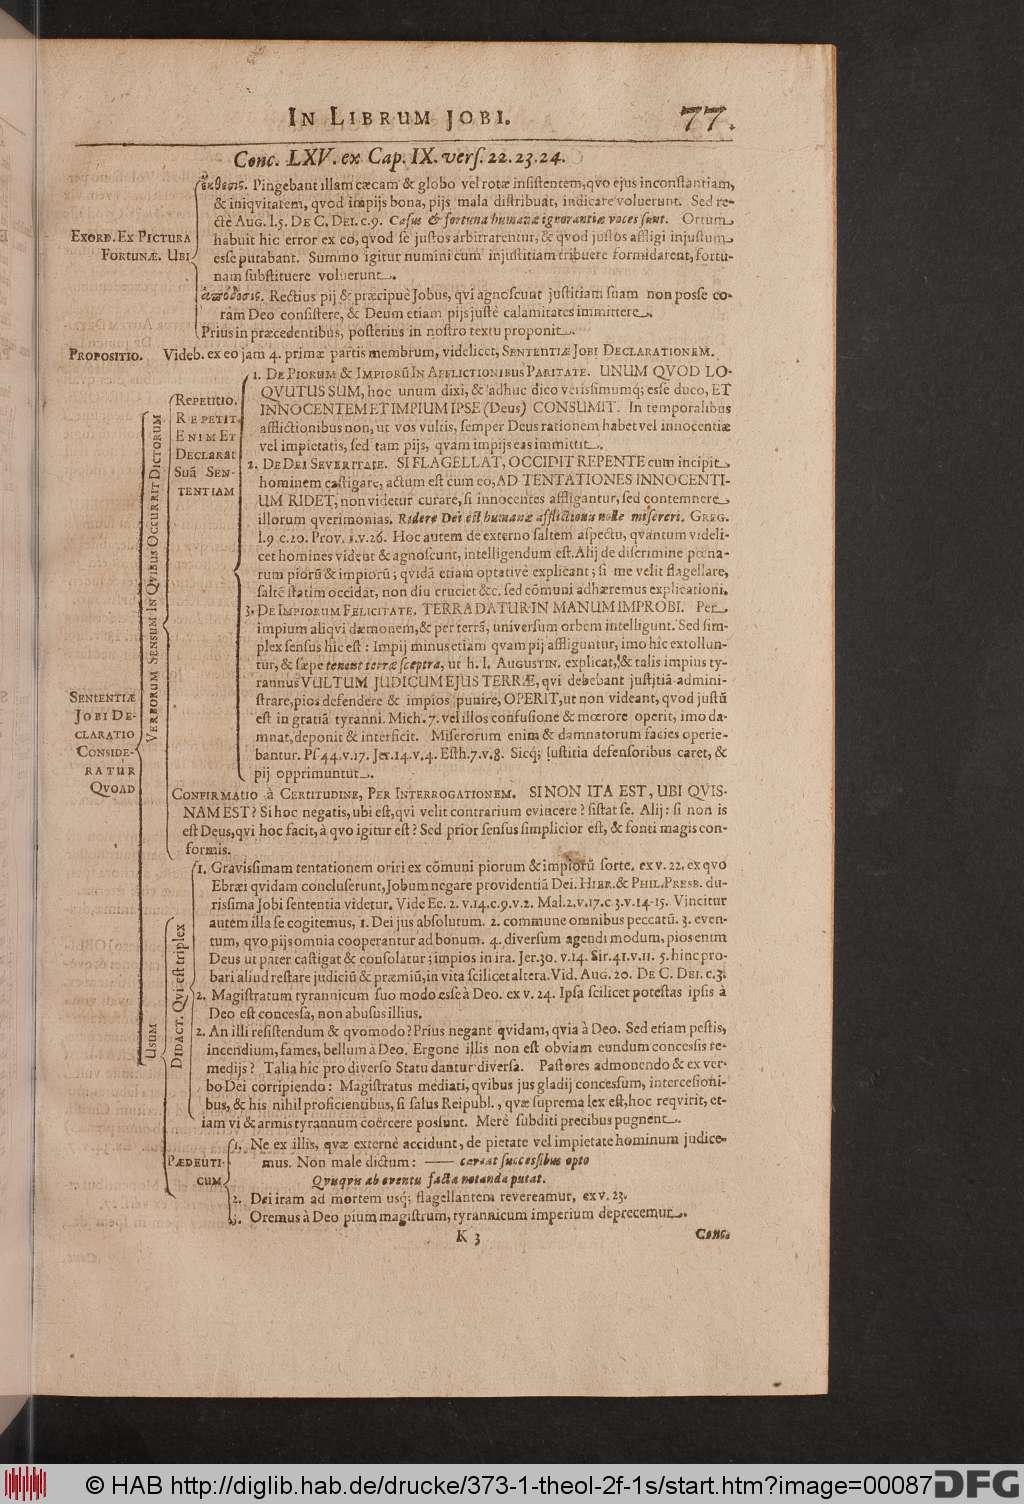 IN LIBRUM JOBI. 77.
Conc. LXV. ex Cap. IX. vers. 22. 23. 24.
EXORD. EX PICTURA
FORTUNÆ. UBI
ἔκθεσις. Pingebant illam cæcam & globo vel rotæ insistentem, qvo ejus inconstantiam,
& iniqvitatem, qvod impijs bona, pijs mala distribuat, indicare voluerunt. Sed re-
ctè AUG. l. 5. DE C. DEI. c. 9. Casus & fortuna humanæ ignorantiæ voces sunt. Ortum
habuit hic error ex eo, qvod se justos arbitrarentur, & qvod justos affligi injustum
esse putabant. Summo igitur numini cum injustitiam tribuere formidarent, fortu-
nam substituere voluerunt.
ἀπόδοσις. Rectius pij & præcipuè Jobus, qvi agnoscunt justitiam suam non posse co-
ram Deo consistere, & Deum etiam pijs justè calamitates immittere.
Prius in præcedentibus, posterius in nostro textu proponit.
PROPOSITIO. Videb. ex eo jam 4. primæ partis membrum, videlicet, SENTENTIÆ JOBI DECLARATIONEM.
SENTENTIÆ
JOBI DE-
CLARATIO
CONSIDE-
RATUR
QVOAD
VERBORUM SENSUM IN QVIBUS OCCURRIT DICTORUM
REPETITIO.
REPETIT
ENIM ET
DECLARAT
SUÃ SEN-
TENTIAM
1. DE PIORUM & IMPIORŨ IN AFFLICTIONIBUS PARITATE. UNUM QVOD LO-
QVUTUS SUM, hoc unum dixi, & adhuc dico verissimumq; esse duco, ET
INNOCENTEM ET IMPIUM IPSE (Deus) CONSUMIT. In temporalibus
afflictionibus non, ut vos vultis, semper Deus rationem habet vel innocentiæ
vel impietatis, sed tam pijs, qvam impijs eas immittit.
2. DE DEI SEVERITATE. SI FLAGELLAT, OCCIDIT REPENTE cum incipit
hominem castigare, actum est cum eo, AD TENTATIONES INNOCENTI-
UM RIDET, non videtur curare, si innocentes affligantur, sed contemnere
illorum qverimonias. Ridere Dei est humanæ afflictionis nolle misereri. GREG.
l. 9. c. 20. Prov. 1. v. 26. Hoc autem de externo saltem aspectu, qvantum videli-
cet homines vident & agnoscunt, intelligendum est. Alij de discrimine pœna-
rum piorũ & impiorũ; qvidã etiam optativè explicant; si me velit flagellare,
saltẽ statim occidat, non diu cruciet &c. sed cõmuni adhæremus explicationi.
3. DE IMPIORUM FELICITATE. TERRA DATUR IN MANUM IMPROBI. Per
impium aliqvi dæmonem, & per terrã, universum orbem intelligunt. Sed sim-
plex sensus hic est: Impij minus etiam qvam pij affliguntur, imo hic extollun-
tur, & sæpe tenent terræ sceptra, ut h. l. AUGUSTIN. explicat, & talis impius ty-
rannus VULTUM JUDICUM EJUS TERRÆ, qvi debebant justitiã admini-
strare, pios defendere & impios punire, OPERIT, ut non videant, qvod justũ
est in gratiã tyranni. Mich. 7. vel illos confusione & mœrore operit, imo da-
mnat, deponit & interficit. Miserorum enim & damnatorum facies operie-
bantur. Ps. 44. v. 17. Jer. 14. v. 4. Esth. 7. v. 8. Sicq; justitia defensoribus caret, &
pij opprimuntur.
CONFIRMATIO à CERTITUDINE, PER INTERROGATIONEM. SI NON ITA EST, UBI QVIS-
NAM EST? Si hoc negatis, ubi est, qvi velit contrarium evincere? sistat se. Alij: si non is
est Deus, qvi hoc facit, à qvo igitur est? Sed prior sensus simplicior est, & fonti magis con-
formis.
USUM
DIDACT. Qvi est triplex
1. Gravissimam tentationem oriri ex cõmuni piorum & impiorũ sorte. ex v. 22. ex qvo
Ebræi qvidam concluserunt, Jobum negare providentiã Dei. HIER. & PHIL. PRESB. du-
rissima Jobi sententia videtur. Vide Ec. 2. v. 14. c. 9. v. 2. Mal. 2. v. 17. c 3. v. 14-15. Vincitur
autem illa se cogitemus, 1. Dei jus absolutum. 2. commune omnibus peccatũ. 3. even-
tum, qvo pijs omnia cooperantur ad bonum. 4. diversum agendi modum, pios enim
Deus ut pater castigat & consolatur; impios in ira. Jer. 30. v. 14. Sir. 41. v. 11. 5. hinc pro-
bari aliud restare judiciũ & præmiũ, in vita scilicet altera. Vid. AUG. 20. DE C. DEI. c. 3.
2. Magistratum tyrannicum suo modo esse à Deo. ex v. 24. Ipsa scilicet potestas ipsis à
Deo est concessa, non abusus illius.
2. An illi resistendum & qvomodo? Prius negant qvidam, qvia à Deo. Sed etiam pestis,
incendium, fames, bellum à Deo. Ergone illis non est obviam eundum concessis re-
medijs? Talia hic pro diverso Statu dantur diversa. Pastores admonendo & ex ver-
bo Dei corripiendo: Magistratus mediati, qvibus jus gladij concessum, intercessioni-
bus, & his nihil proficientibus, si salus Reipubl., qvæ suprema lex est, hoc reqvirit, et-
iam vi & armis tyrannum coërcere possunt. Merè subditi precibus pugnent.
PÆDEUTI-
CUM
1. Ne ex illis, qvæ externè accidunt, de pietate vel impietate hominum judice-
mus. Non male dictum: — careat successibus opto
Qvisqvis ab eventu facta notanda putat.
2. Dei iram ad mortem usq; flagellantem revereamur, ex v. 23.
3. Oremus à Deo pium magistrum, tyrannicum imperium deprecemur.
K 3 Conc.
© HAB http://diglib.hab.de/drucke/373-1-theol-2f-1s/start.htm?image=00087 DFG